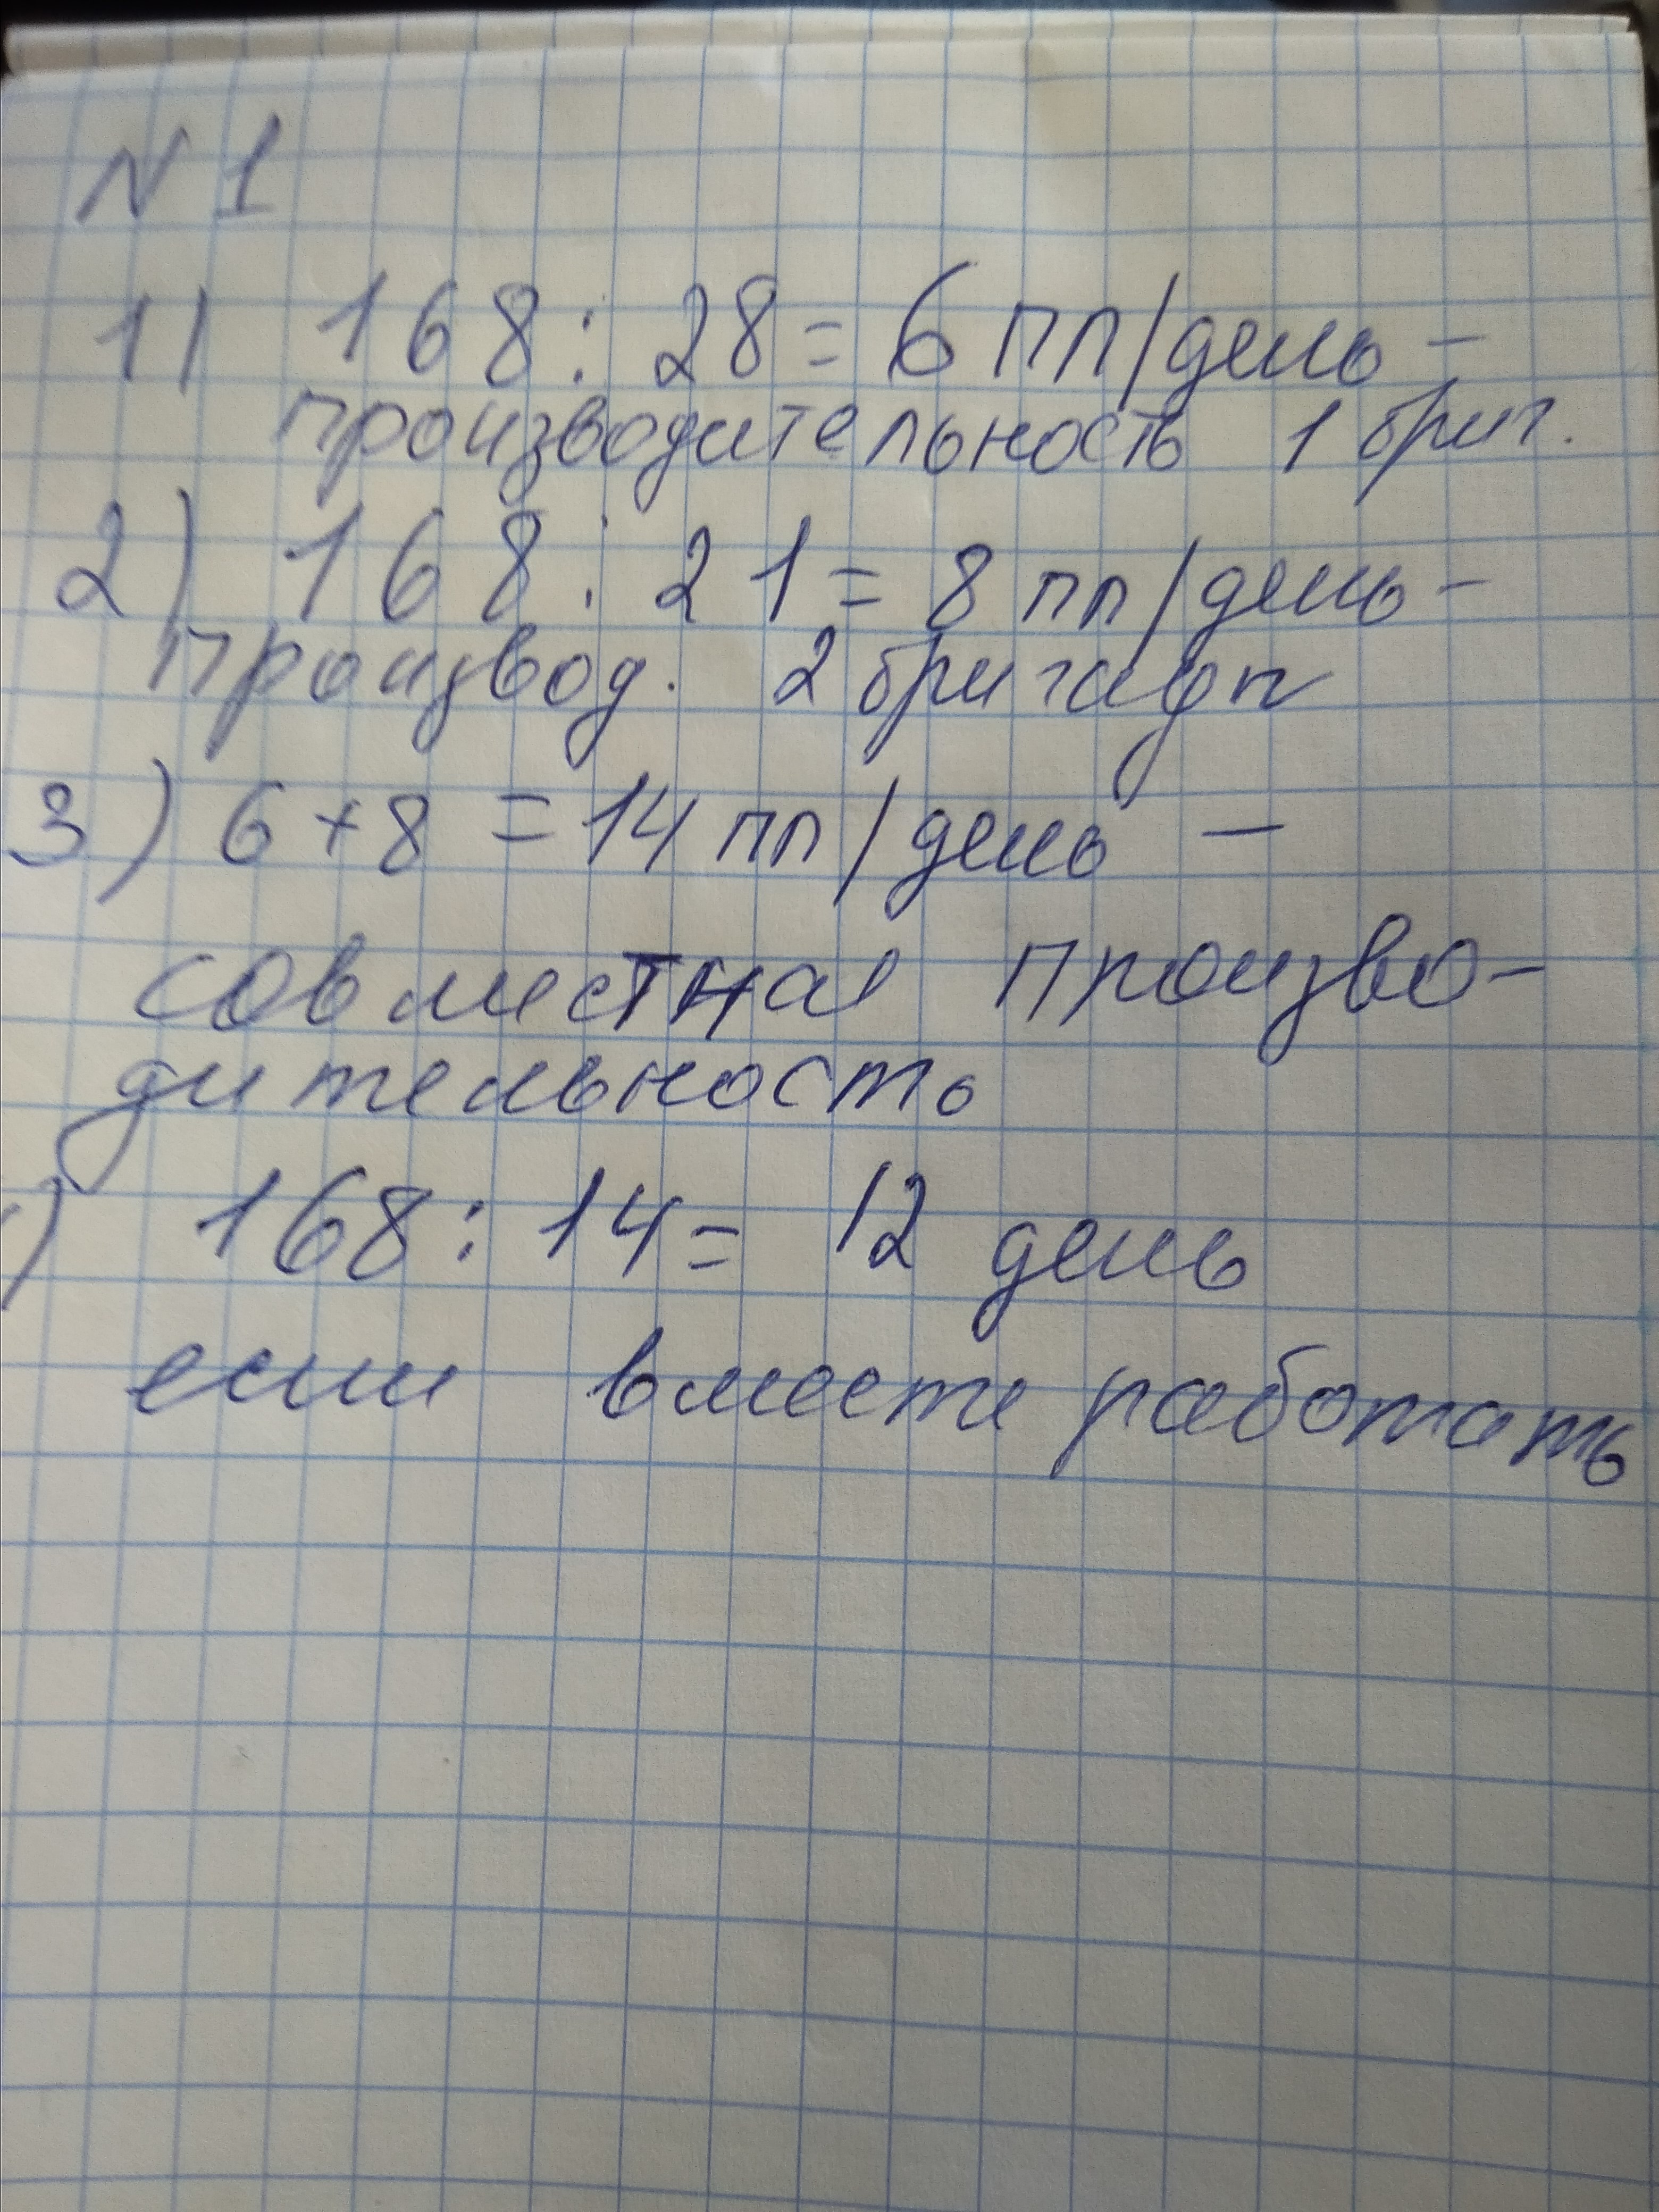 N 1
1) 168 : 28 = 6 пл/день –
производительность 1 бриг.
2) 168 : 21 = 8 пл/день –
производ. 2 бригады
3) 6 + 8 = 14 пл/день –
совместная произво-
дительность
) 168 : 14 = 12 день
если вместе работать